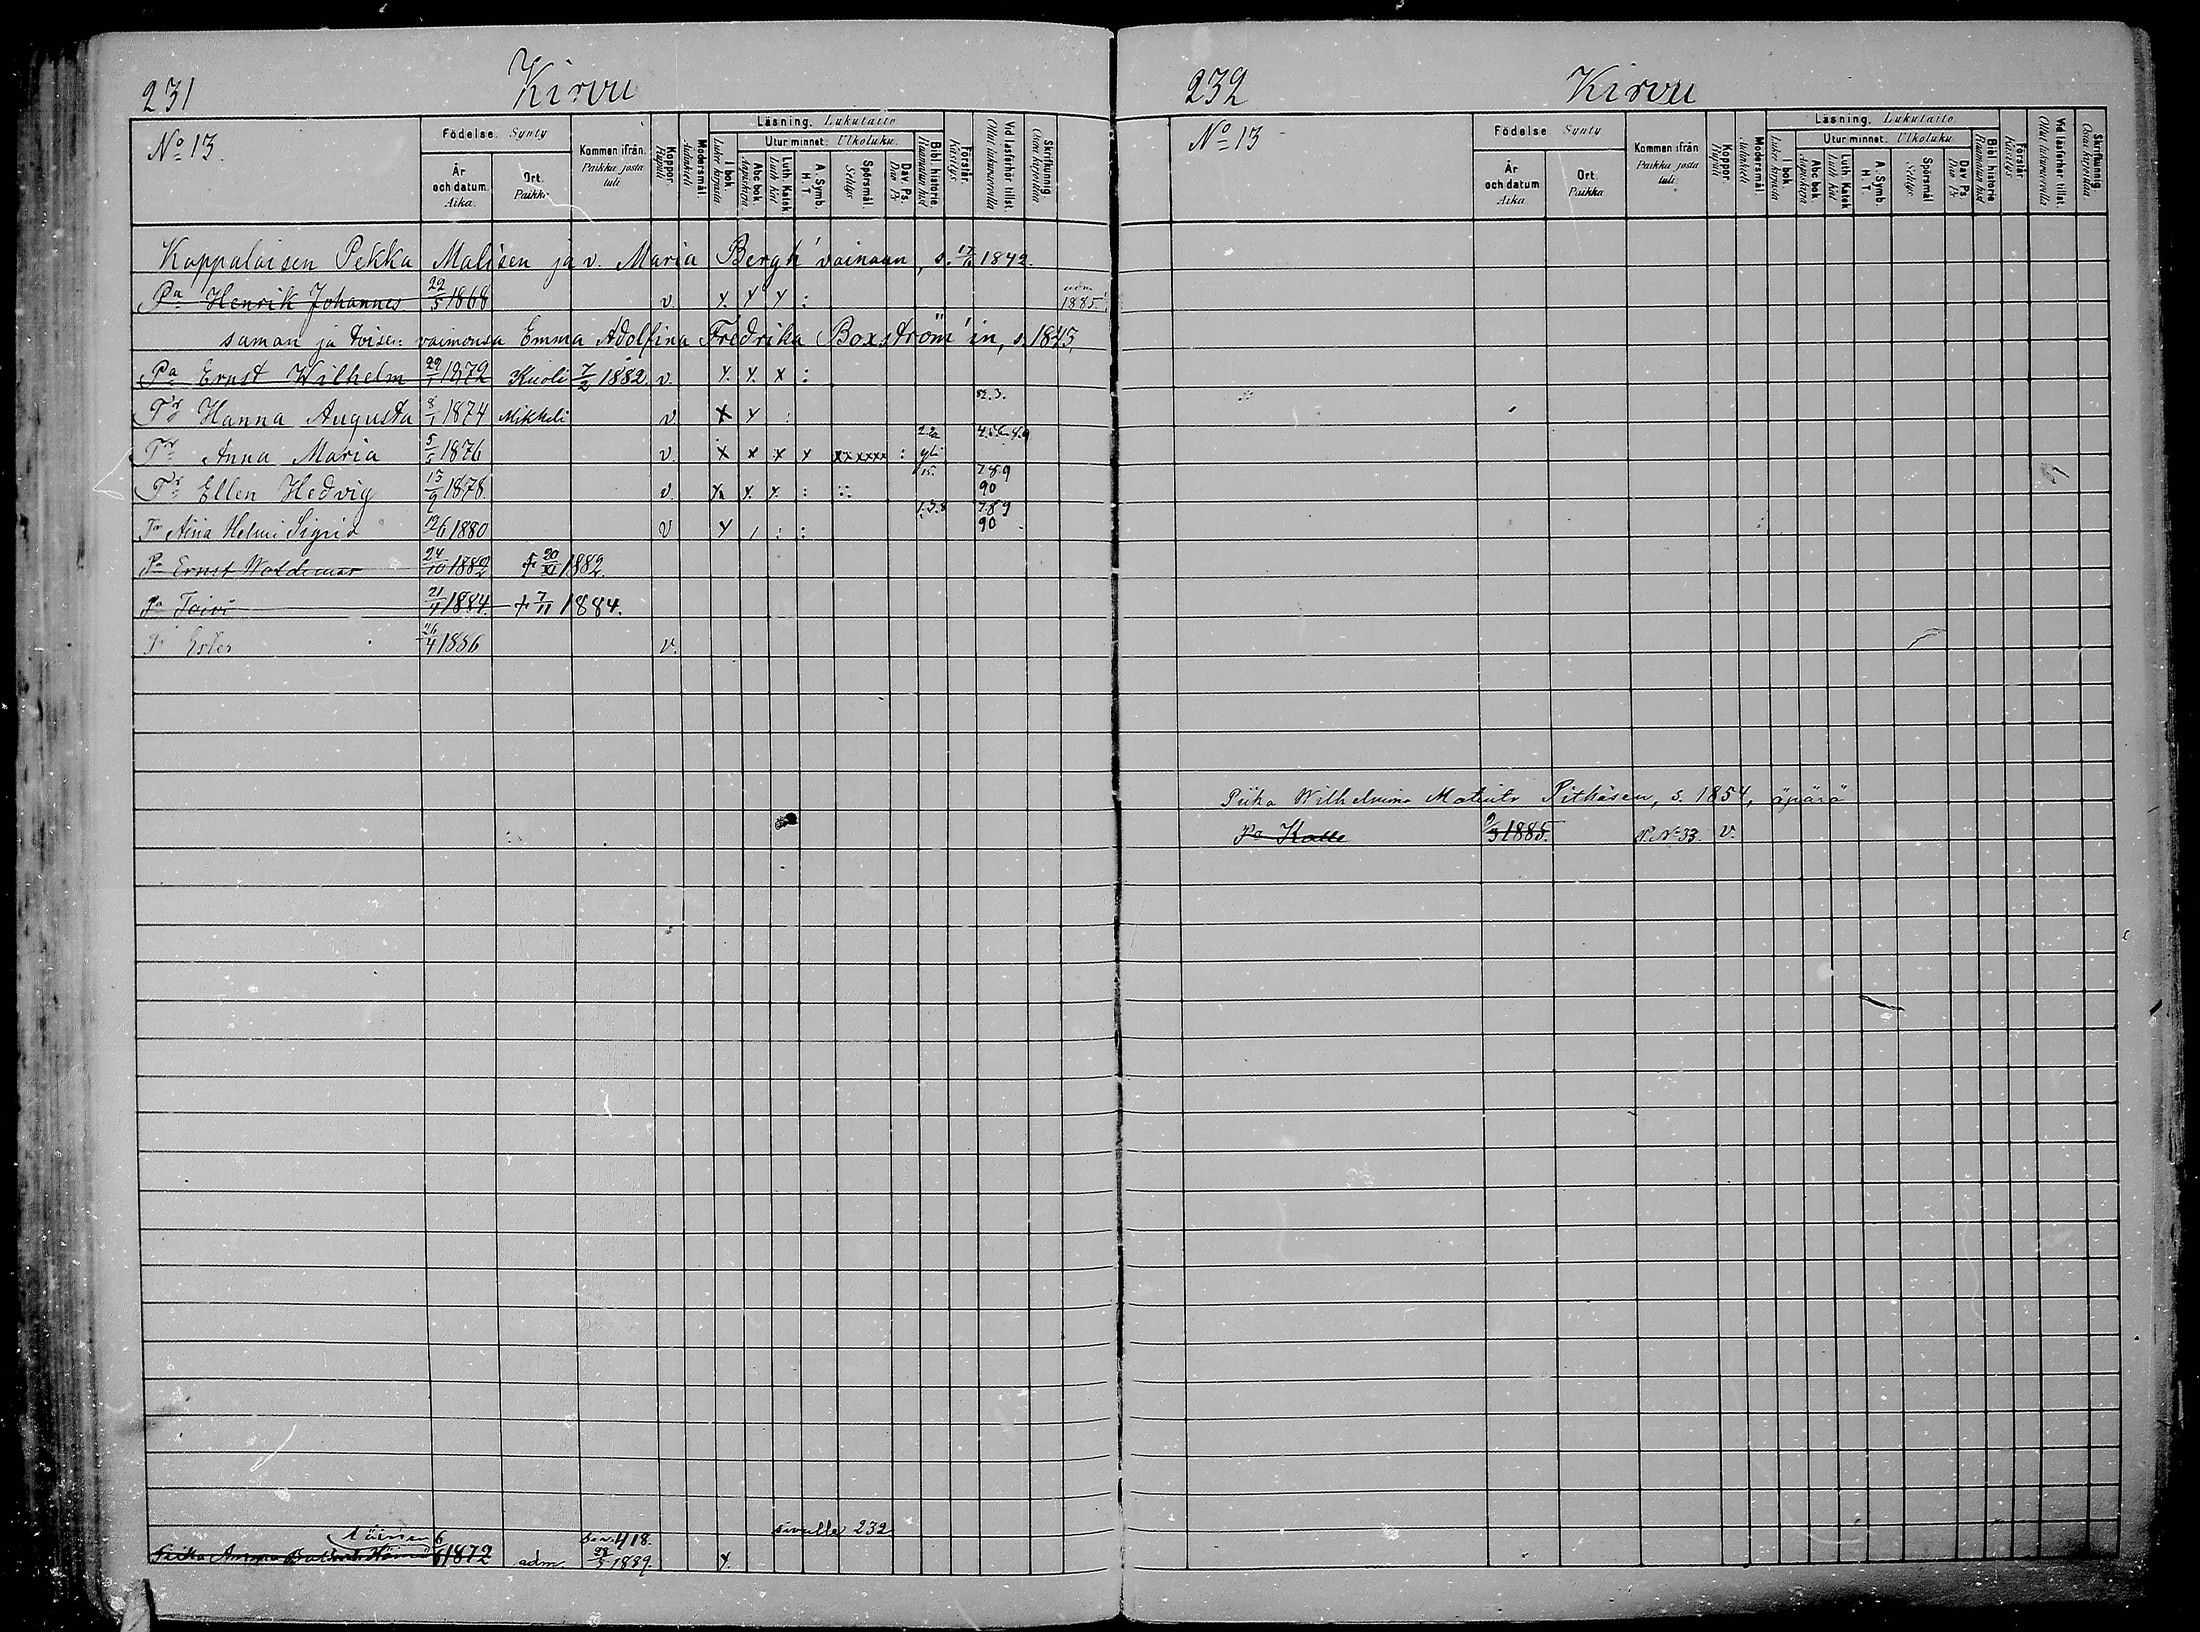 231 Kirvu
No 13.
Födelse. Synty
År och datum. Aika.
Ort. Paikka
Kommen ifrån. Paikka josta tuli
Koppor. Rupuli
Modersmål. Äidinkieli
Läsning. Lukutaito
I bok. Lukee kirjasta
Utur minnet. Ulkoluku.
Abc bok. Aapiskirja
Luth. Katek. Luth. Kat
A. Symb. H. T.
Spörsmål. Selitys
Dav. Ps. Dav. Ps
Bibl. historie. Raamatun hist
Förstår. Käsitys
Vid läsförhör tillst. Ollut lukuvuorolla
Skrifkunnig. Osaa kirjoittaa
Kappalaisen Pekka Malisen ja v. Maria Bergh' vainaan, s. 17/6 1842.
Pa Henrik Johannes 22/5 1868 v. x. x x : adm. 1885.
saman ja toisen vaimonsa Emma Adolfina Fredrika Boxström'in, s. 1845,
Pa Ernst Wilhelm 22/1 1872 Kuoli 7/2 1882. v. x. x. x :
Tr Hanna Augusta 8/1 1874 Mikkeli v x x : 82.3.
Tr Anna Maria 5/6 1876 v. x x x x xxxxxx : yli
Tr Ellen Hedvig 13/9 1878. v. x x. x. : 15. 7.8 9 90
Tr Aina Helmi Sigrid 12/6 1880 v x , : : 1.3.8 7.89 90
Pa Ernst Woldemar 24/10 1882 † 20/XI 1882.
Pa Toivi 21/4 1884. † 7/11 1884.
Tr Ester 26/4 1886 v.
sivulle 232
6/6 1872 adm. Siv. 418. 28/5 1889. x.
232 Kirvu
No 13
Födelse Synty
År och datum Aika
Ort. Paikka
Kommen ifrån Paikka josta tuli.
Koppor. Rupuli
Modersmål. Äidinkieli
Läsning. Lukutaito
I bok. Lukee kirjasta
Utur minnet. Ulkoluku
Abc bok. Aapiskirja
Luth. Katek Luth. Kat
A. Symb. H. T.
Spörsmål Selitys
Dav. Ps. Dav. Ps
Bibl. historie Raamatun hist
Förstår. Käsitys
Vid läsförhör tillst. Ollut lukuvuorolla
Skrifkunnig. Osaa kirjoittaa
Piika Wilhelmina Matintr Pitkäsen, s. 1854, äpärä
Pa Kalle 9/3 1885. P. No 33. v.